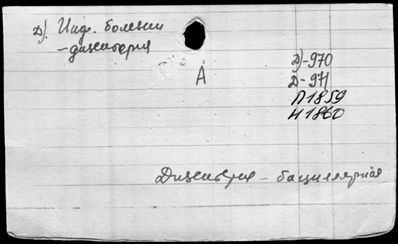 Д). Инф. болезни
- дизентерия
А
Д-970
Д-971
П1859
Н1860
Дизентерия - бациллярная